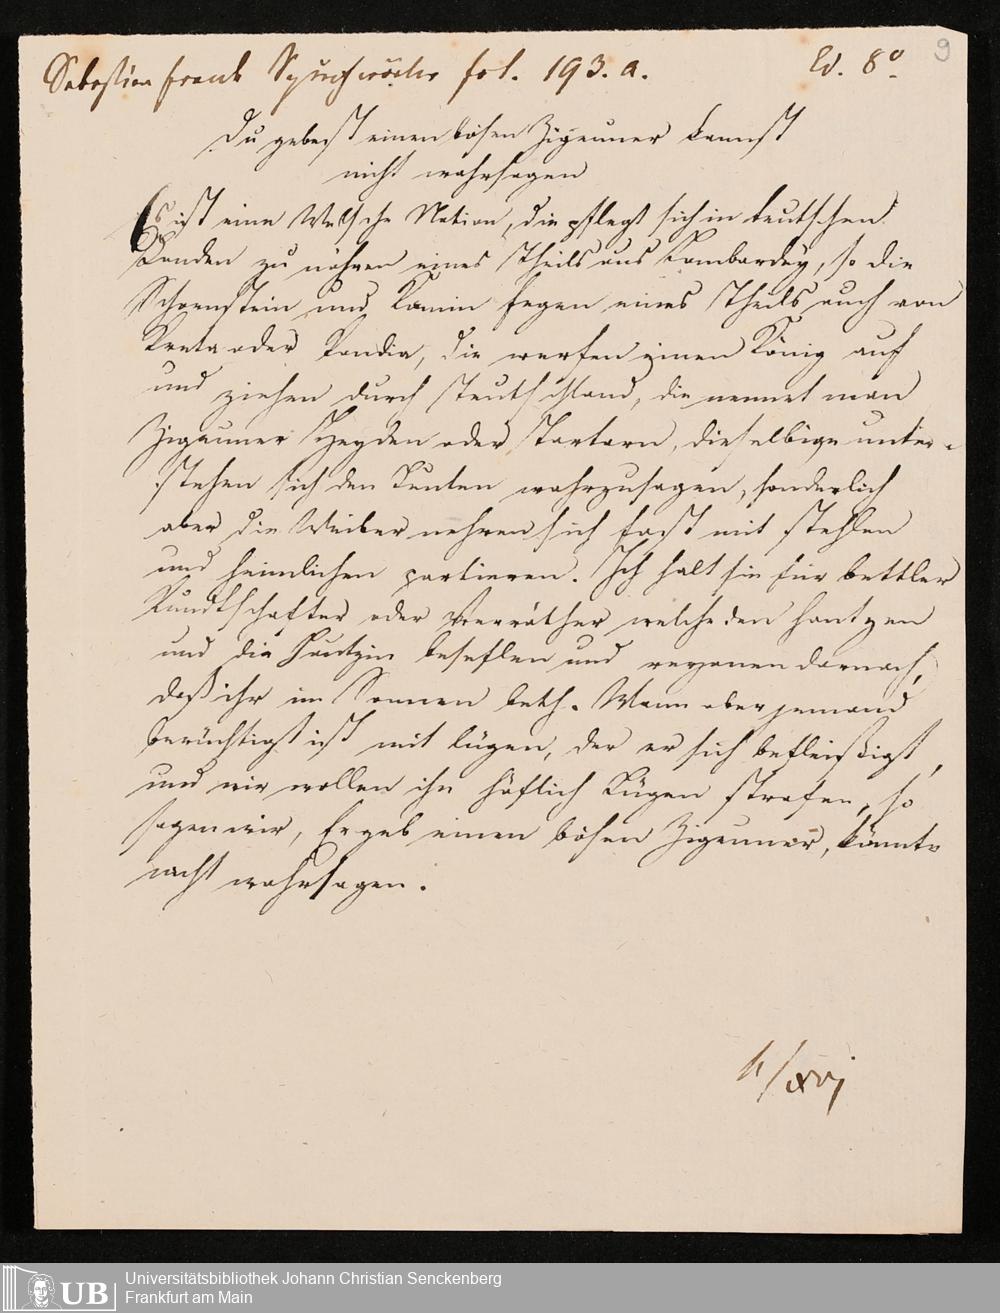 Sebastian Frank Sprichwörter fol. 193. a. Ed. 8º.
9
Du gebest einen bösen Zigeuner kannst
nicht wahrsagen
Es ist eine Welsche Nation, die pflegt sich in teutschen
Landen zu nähren eines Theils aus Lombardey, so die
Schornstein und Kamin fegen eines Theils auch von
Kreta oder Candia, die werfen einen König auf
und ziehen durch Teutschland, die nennet man
Zigeuner Heyden oder Tartarn, dieselbige unter-
stehen sich den Leuten wahrzusagen, sonderlich
aber die Weiber nehren sich fast mit stehlen
und heimlichen partieren. Ich halt sie für bettler
Kundtschafter oder Verräther welche den hautzen
und die Hautzin beseflen und darnach,
daß ihr im Sonnen beth. Wann aber jemand
berüchtigt ist mit lügen, der er sich befleißigt,
und wir wollen ihn höflich Lügen strafen, so
sagen wir, Er geb einen bösen Zigeuner, könnte
nicht wahrsagen.
xvj
UB Universitätsbibliothek Johann Christian Senckenberg
Frankfurt am Main